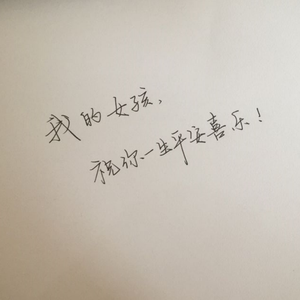 我的女孩，
祝你一生平安喜乐！